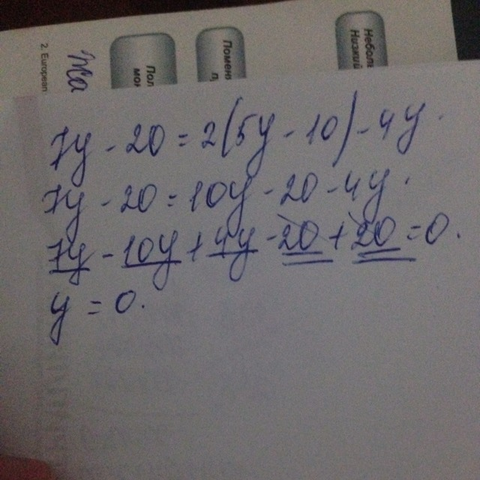 2. European
Жа
Пол
мо
Помен
п
Небол
Низкий
7y - 20 = 2(5y - 10) - 4y.
7y - 20 = 10y - 20 - 4y.
7y - 10y + 4y - 20 + 20 = 0.
y = 0.